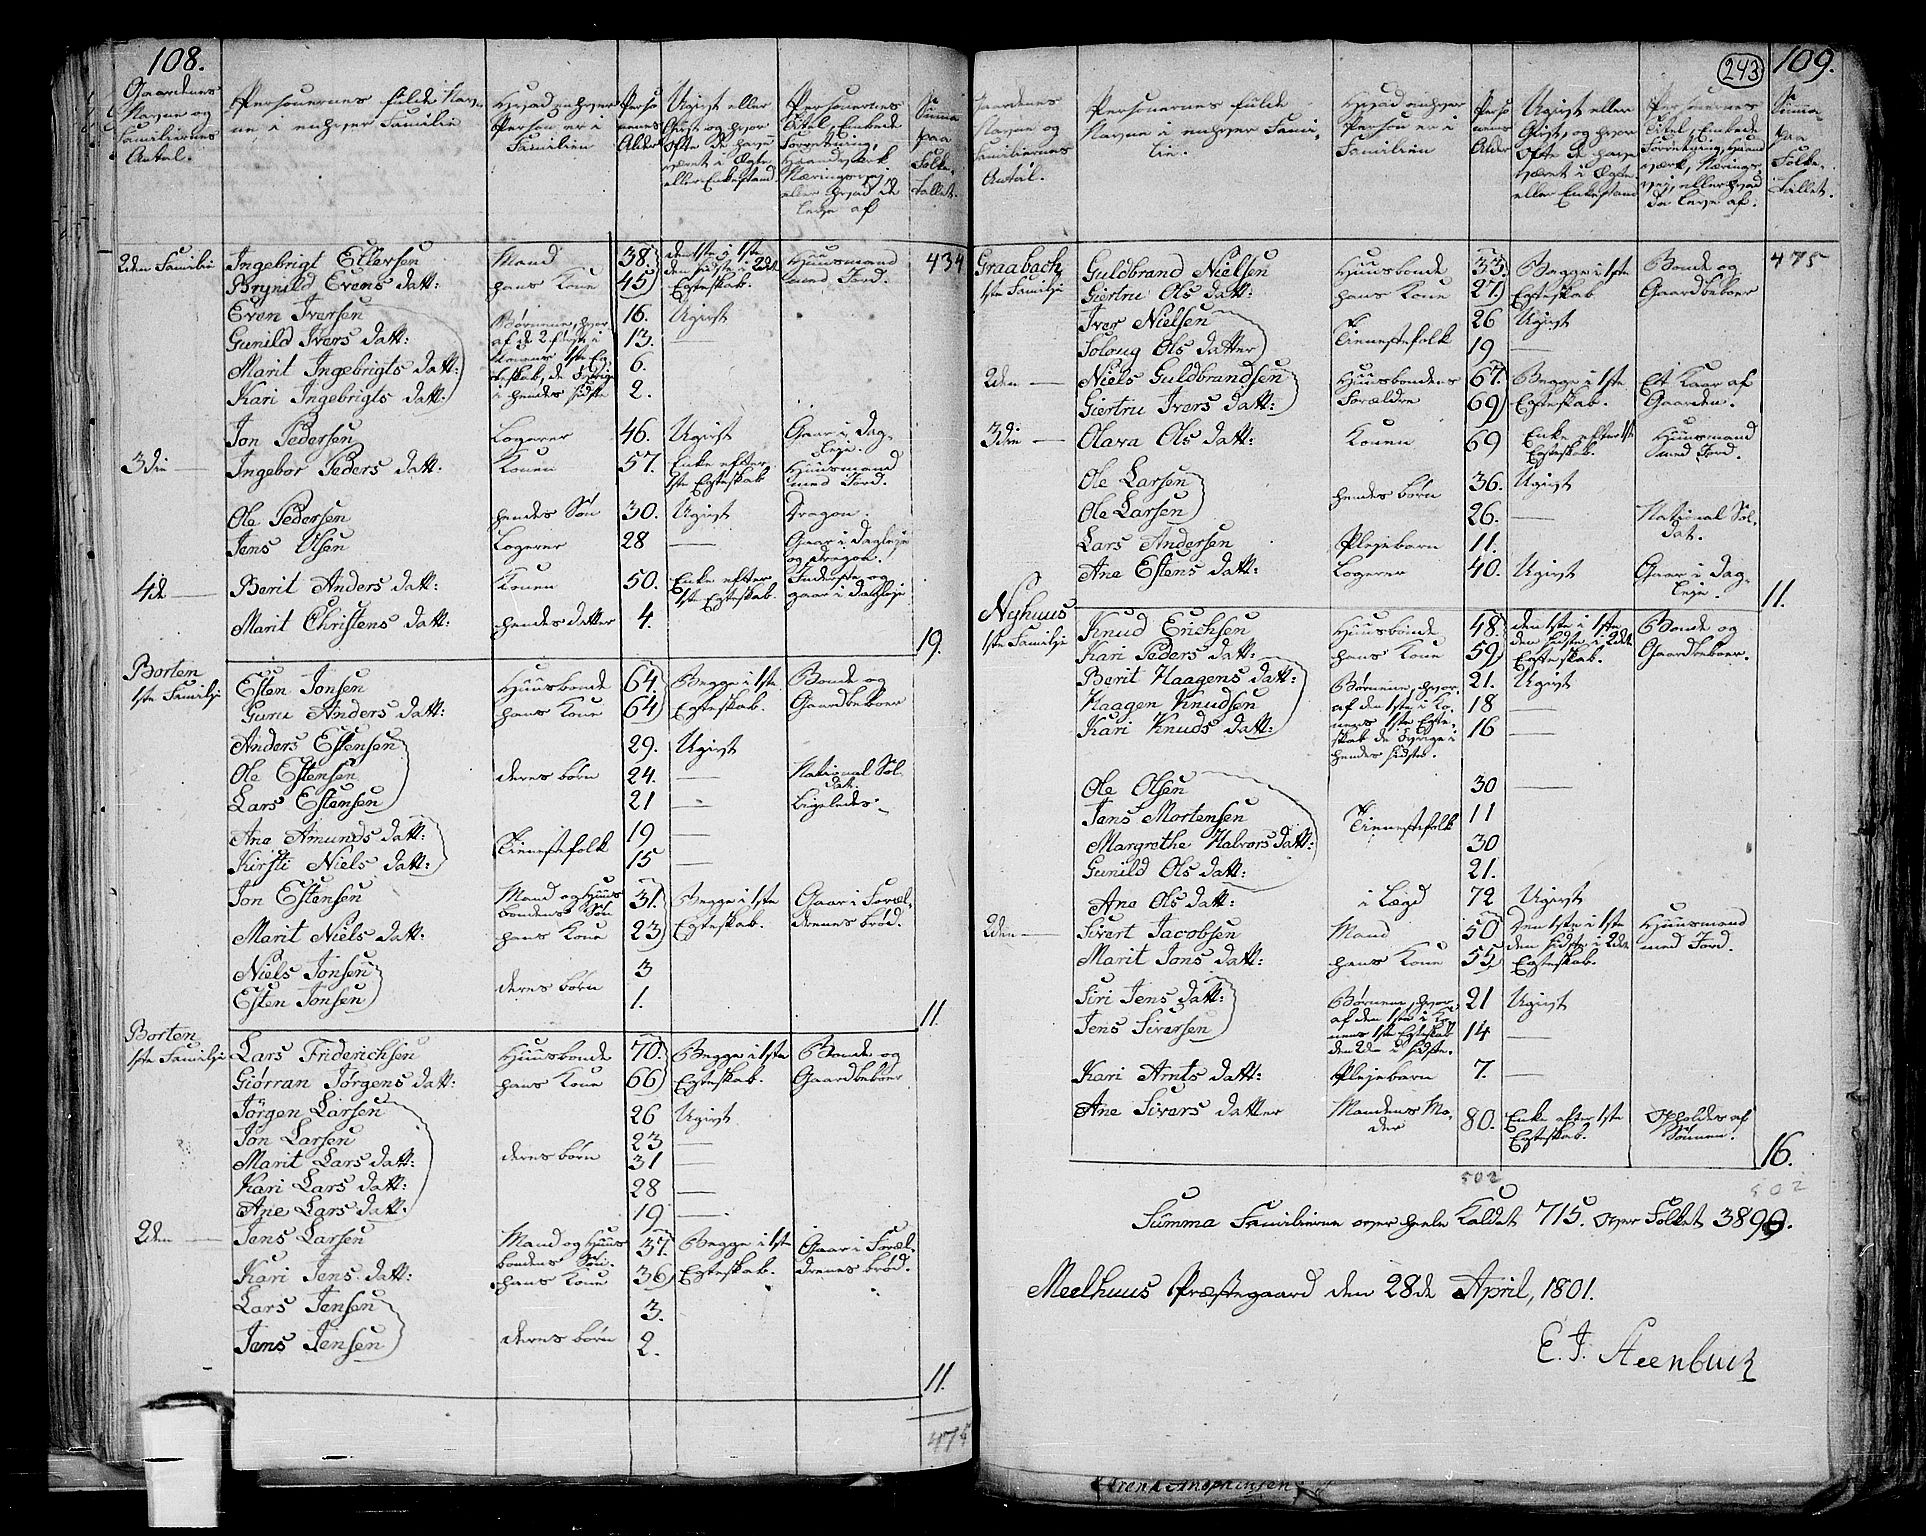 108.
Gaardenes Navne og Familiernes Antal.
Personernes fulde Navne i enhver Familie
Hvad enhver Person er i Familien
Personernes Alder
Ugivt eller Givt og hvor Ofte de have været i Ægte eller Enkestand
Personernes Titel, Embede Forretning, Haandverk Næringsvej eller hvad de leve af
Summa paa Folke-Tallet.
434
2den Familie Ingebrigt Ellevsen Mand 38. den 1ste i 1ste den sidste i 2det Egteskab. Huusmand med Jord.
Brynild Evens datt: hans Kone 45
Even Iversen Børnene, hvor af de 2 første i Konens 1ste Egteskab, de øvrige i hendes sidste 16. Ugivt
Gunild Ivers datt: 13. —
Marit Ingebrigts datt: 6.
Kari Ingebrigts datt. 2.
Jon Pedersen Logerer 46. Ugivt Gaar i Dagleje.
3die — Ingebor Peders datt: Konen 57. Enke efter 1ste Egteskab Huusmand med Jord.
Ole Pedersen hendes Søn 30. Ugivt Dragon.
Jens Olsen Logerer 28 — Gaar i Dagleje og Dragon.
4de — Berit Anders datt: Konen 50. Enke efter 1ste Egteskab. Inderste og gaar i Dagleje
Marit Christens datt: hendes datter 4.
19.
Borten
1ste Familje Esten Jonsen Huusbonde 64. Begge i 1ste Egteskab. Bonde og Gaardbeboer
Guru Anders datt: hans Kone 64
Anders Estensen 29. Ugivt
Ole Estensen deres børn 24. — National Soldat.
Lars Estensen 21 — Ligeledes
Ane Amunds datt: Tienestefolk 19 —
Kirsti Niels datt: 15 —
Jon Estensen Mand og Huusbondens Søn 31. Begge i 1ste Egteskab. Gaar i Forældrenes brød.
Marit Niels datt: hans Kone 23
Niels Jonsen deres børn 3
Esten Jonsen 1.
11.
Borten
1ste Familje Lars Friderichsen Huusbonde 70. Begge i 1ste Egteskab. Bonde og Gaardbeboer
Giørran Jørgens datt: hans Kone 66
Jørgen Larsen 26 Ugivt
Jon Larsen 23 —
Marit Lars datt: deres børn 31 —
Kari Lars datt: 28 —
Ane Lars datt: 19 —
2den — Jens Larsen Mand og Huusbondens Søn. 37. Begge i 1ste Egteskab. Gaar i Forældrenes brød.
Kari Jens datt: hans Kone 36
Lars Jensen deres børn 3.
Jens Jensen 2.
11.
475
243
109.
Gaardenes Navne og Familiernes Antal.
Personernes fulde Navne i enhver Familie.
Hvad enhver Person er i Familien
Personernes Alder
Ugivt eller Givt, og hvor Ofte de have været i Ægte eller Enkestand
Personernes Titel, Embede Forretning, Haandverk, Næringsvej, eller hvad de leve af.
Summa paa Folke-Tallet.
475
Graabach
1ste Familje Guldbrand Nielsen Huusbonde 33. Begge i 1ste Egteskab Bonde og Gaardbeboer
Giertru Ols datt: hans Kone 27
Iver Nielsen Tienestefolk 26 Ugivt
Soloug Ols datter 19 —
2den — Niels Guldbrandsen Huusbondens Forældre 67. Begge i 1ste Egteskab. Et Kaar af Gaarden.
Giertru Ivers datt: 69
3die — Olava Ols datt: Konen 69 Enke efter 1ste Egteskab. Huusmand med Jord.
Ole Larsen hendes børn 36. Ugivt
Ole Larsen 26. — National Soldat.
Lars Andersen Plejebarn 11.
Ane Estens datt: Logerer 40. Ugivt Gaar i Dagleje.
11.
Nyhuus
1ste Familje Knud Erichsen Huusbonde 48. den 1ste i 1ste den sidste i 2det Egteskab. Bonde og Gaardbeboer.
Kari Peders datt: hans Kone 59
Berit Haagens datt: Børnene, hvoraf den 1ste i Konens 1ste Egteskab de øvrige i hendes sidste. 21. Ugivt
Haagen Knudsen 18 —
Kari Knuds datt: 16 —
Ole Olsen 30 —
Jans Mortensen Tienestefolk 11
Margrethe Halvors datt: 30
Gunild Ols datt: 21.
Ane Ols datt: i Lægd 72 Ugivt
2den — Sivert Jacobsen Mand 50 Den 1ste i 1ste den sidste i 2det Egteskab. Huusmand med Jord.
Marit Jons datt: hans Kone 55
Siri Jens datt: Børnene, hvoraf den 1ste i Konens 1ste Egteskab den 2den i sidste. 21 Ugivt
Jens Siversen 14 —
Kari Arnts datt: Plejebarn 7. —
Ane Sivers datter Mandens Moder 80. Enke efter 1ste Egteskab. Opholdes af Sönnen.
16.
502
502
Summa Familierne over heele Kaldet 715. over Folket 3890.
Meelhuus Præstegaard den 28de April, 1801.
E. J. Steenbuch